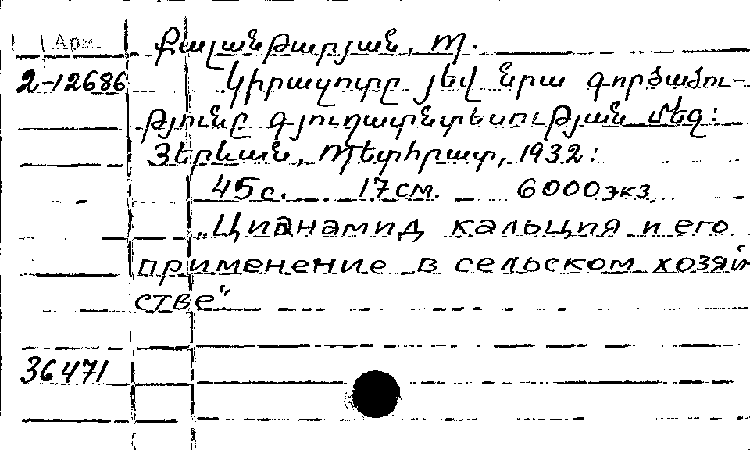 Арм. Քալանթարյան, Պ.
2-12686 Կիրազոտը յեվ նրա գործածու-
թյունը գյուղատնտեսության մեջ:
Յերևան, Պետհրատ, 1932:
45с. 17см. 6000экз.
„Цианамид кальция и его
применение в сельском хозяй
стве"
36471